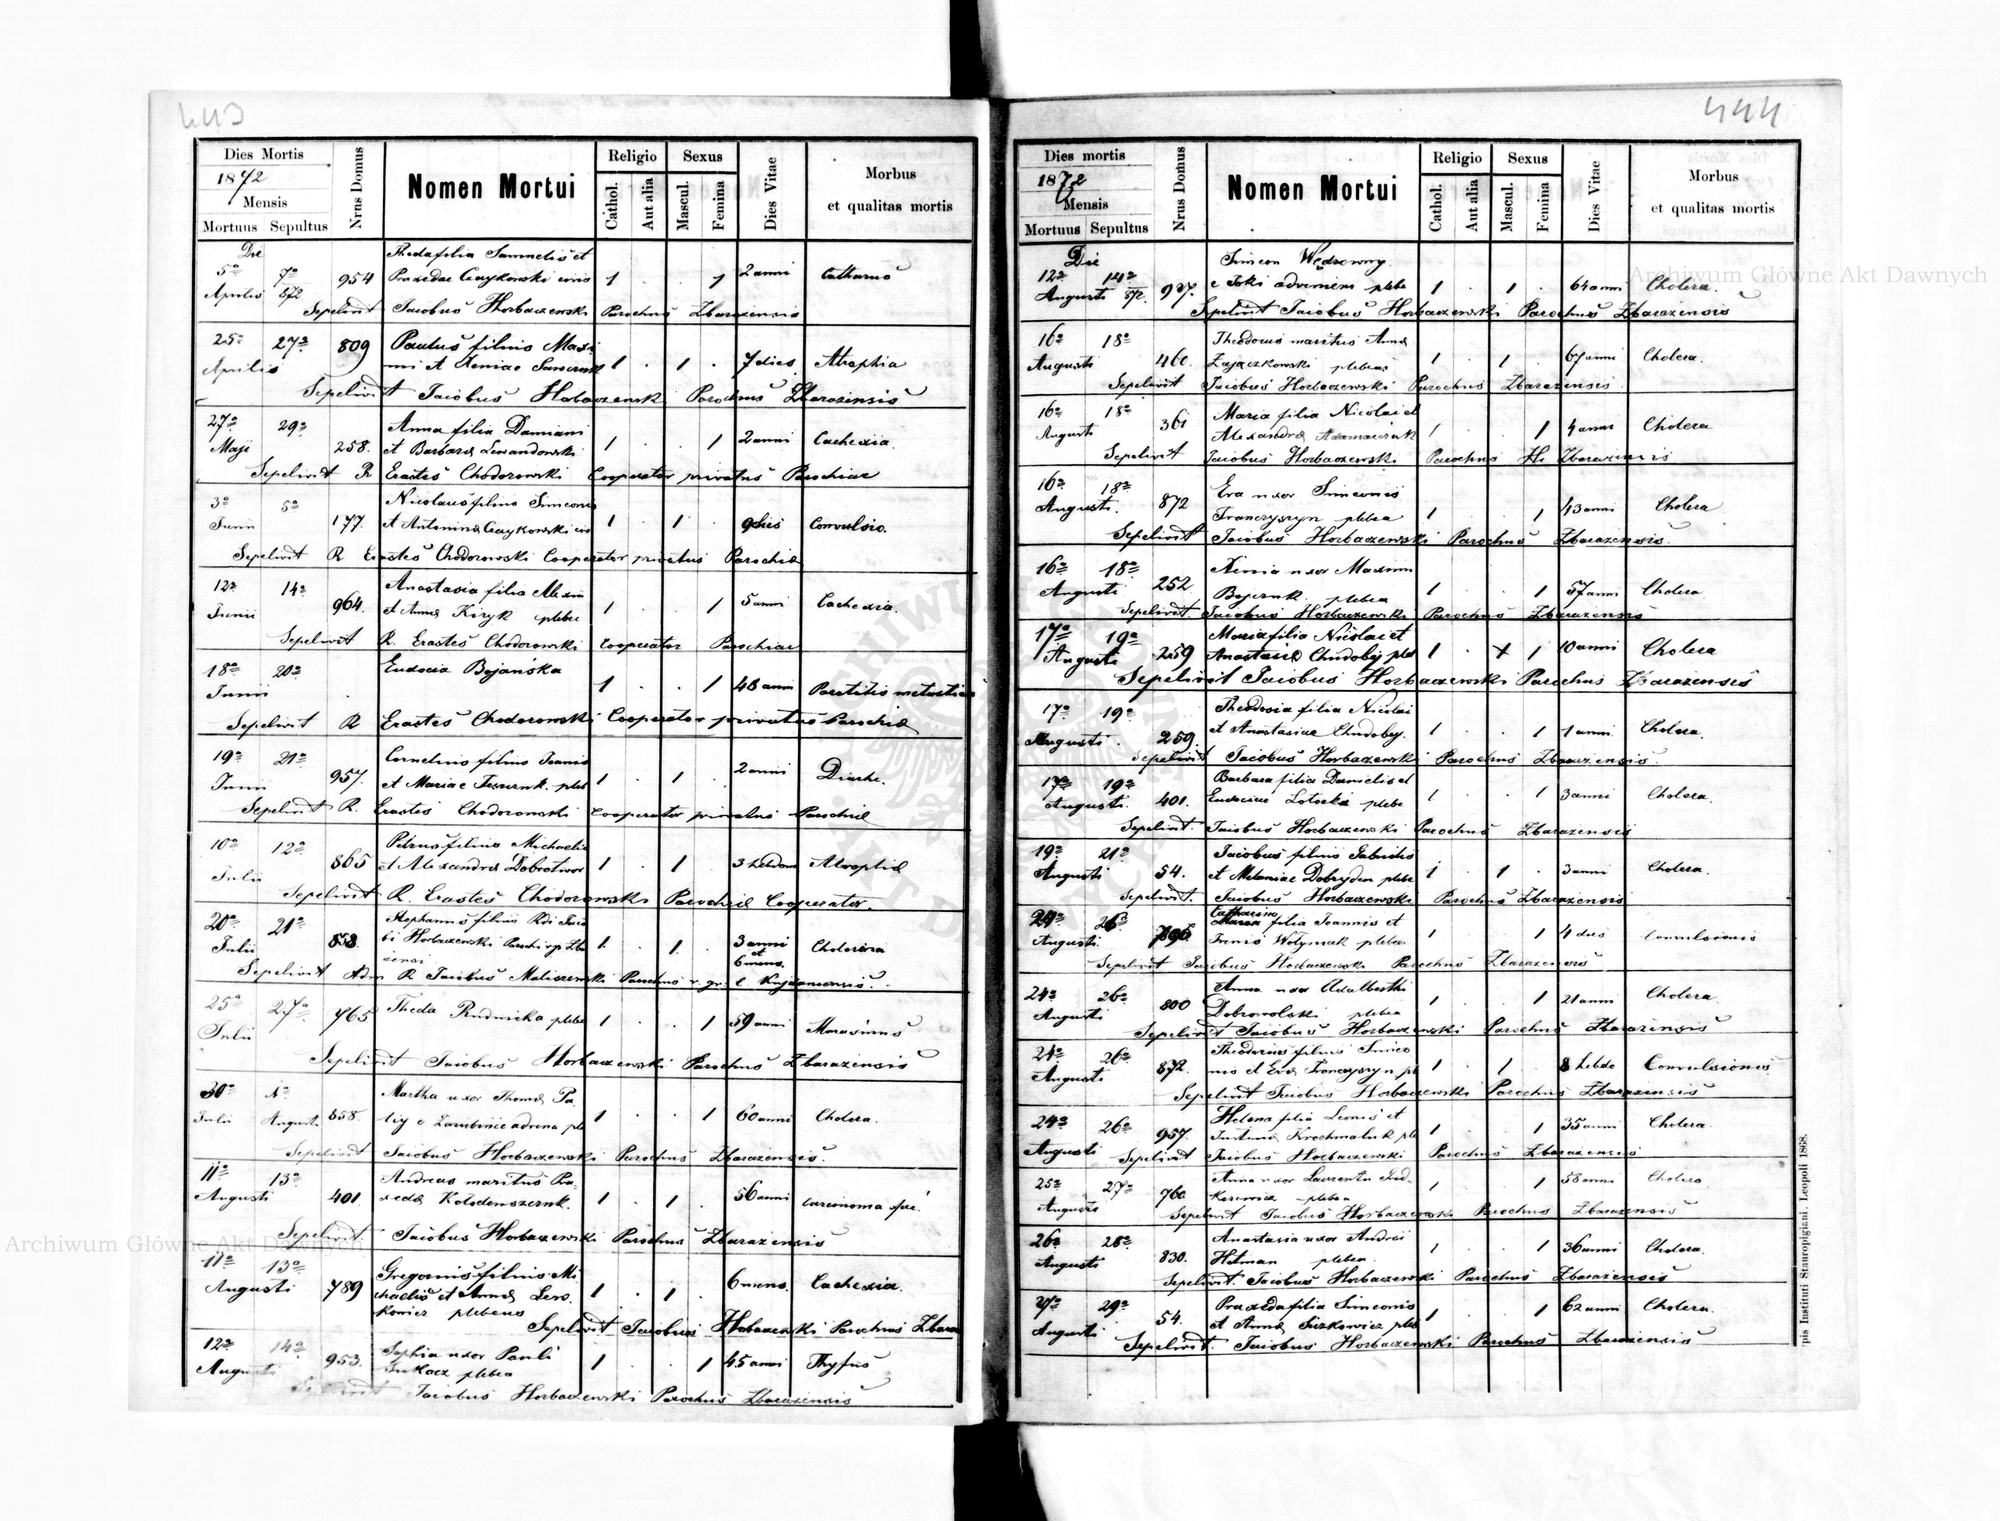 443
Dies Mortis
1872
Mensis
Mortuus Sepultus
Nrus Domus
Nomen Mortui
Religio
Cathol.
Aut alia
Sexus
Mascul.
Femina
Dies Vitae
Morbus
et qualitas mortis
Die
5a 7a Theda filia Samuelis et
Aprilis 872 954 Praxedae Czaykowski civis 1 1 2 anni Catharus
Sepelivit Jacobus Horbaczewski Parochus Zbarazensis
25a 27a 809 Paulus filius Maxi
Aprilis mi et Xeniae 1 1 7 dies Atrophia
Sepelivit Jacobus Horbaczewski Parochus Zbarazensis
27a 29a Anna filia Damiani
Maji 258. et Barbara Lewandowski 1 1 2 anni Cachexia.
Sepelivit R Erastes Chodorowski Cooperator privatus Parochiae
3a 5a Nicolaus filius Simeonis
Junii 177. et Antonina Czaykowski 1 1 9 dies Convulsio.
Sepelivit R Erastes Chodorowski Cooperator privatus Parochia
12a 14a Anastasia filia
Junii 964. et Anna Kizyk plebei 1 1 5 anni Cachexia.
Sepelivit R. Erastes Chodorowski Cooperator Parochiae
18a 20a Eudocia Bojańska
Junii 1 1 48 anni Parotitis
Sepelivit R Erastes Chodorowski Cooperator privatus Parochia
19a 21a Cornelius filius Joannis
Junii 957. et Mariae 1 1 2 anni
Sepelivit R. Erastes Chodorowski Cooperator privatus Parochia
10a 12a Petrus filius Michaelis
Julii 865 et Alexandra Dobrotwor 1 1 3 hebdom
Sepelivit R. Erastes Chodorowski Parochia Cooperator.
20a 21a Stephanus filius Rdi Jaco
Julii 858. bi Horbaczewski 1. 1. 3 anni et 6 mens. Cholerina
Sepelivit Adm R Jacobus Maliszewski Parochus
25a 27a 765 Theda Rudnicka plebe 1 1 59 anni Marasmus
Julii
Sepelivit Jacobus Horbaczewski Parochus Zbarazensis
30a 1a Martha uxor Thoma Pa
Julii Augusti 858. 1 1 60 anni Cholera.
Sepelivit Jacobus Horbaczewski Parochus Zbarazensis.
11a 13a Andreas maritus Pra
Augusti 401 xeda 1 1 56 anni Carcinoma
Sepelivit Jacobus Horbaczewski Parochus Zbarazensis
11a 13a Gregorius filius Mi
Augusti 789 chaelis et Anna Lew 1 1 6 mens. Cachexia.
kowicz plebeus
Sepelivit Jacobus Horbaczewski Parochus
12a 14a Sophia uxor Pauli
Augusti 953. plebea 1 1 45 anni Thyfus
Sepelivit Jacobus Horbaczewski Parochus Zbarazensis
444
Dies mortis
1872
Mensis
Mortuus Sepultus
Nrus Domus
Nomen Mortui
Religio
Cathol.
Aut alia
Sexus
Mascul.
Femina
Dies Vitae
Morbus
et qualitas mortis
Die
12a 14a Simeon
Augusti 872. 927. 1 1 64 anni Cholera.
Sepelivit Jacobus Horbaczewski Parochus Zbarazensis
16a 18a Theodorus maritus Anna
Augusti 460. Zajączkowski plebeus 1 1 67 anni Cholera.
Sepelivit Jacobus Horbaczewski Parochus Zbarazensis.
16a 18a 361 Maria filia Nicolai et
Augusti Alexandra Adamaszuk 1 1 4 anni Cholera
Sepelivit Jacobus Horbaczewski Parochus Zbarazensis
16a 18a Eva uxor Simeonis
Augusti. 872 Franczyszyn plebea 1 1 43 anni Cholera
Sepelivit Jacobus Horbaczewski Parochus Zbarazensis.
16a 18a 252 Xenia uxor Maximi
Augusti plebea 1 1 57 anni Cholera
Sepelivit Jacobus Horbaczewski Parochus Zbarazensis
17a 19a Maria filia Nicolai et
Augusti 259 Anastasia Chudobey 1 1 10 anni Cholera
Sepelivit Jacobus Horbaczewski Parochus Zbarazensis
17a 19a Theodosia filia Nicolai
Augusti. 259. et Anastasiae Chudobey. 1 1 1 anni Cholera.
Sepelivit Jacobus Horbaczewski Parochus Zbarazensis.
17a 19a Barbara filia Danielis et
Augusti. 401. Eudociae Lotocka plebe 1 1 3 anni Cholera.
Sepelivit. Jacobus Horbaczewski Parochus Zbarazensis
19a 21a Jacobus filius Gabrielis
Augusti 54. et Melaniae plebe 1 1 3 anni Cholera.
Sepelivit. Jacobus Horbaczewski Parochus Zbarazensis
24a 26a Catharina filia Joannis et
Augusti. Wolyniak plebea 1 1 4 dies Convulsionis
Sepelivit Jacobus Horbaczewski Parochus Zbarazensis
24a 26a 800 Anna uxor Adalberthi
Augusti Dobrowolski plebea 1 1 21 anni Cholera.
Sepelivit Jacobus Horbaczewski Parochus Zbarazensis
24a 26a Theodorus filius Simeo
Augusti 872. nis et Eva Franczyszyn 1 1 8 hebdo Convulsionis
Sepelivit Jacobus Horbaczewski Parochus Zbarazensis
24a 26a 957. Helena filia Leonis et
Augusti Justina Krochmaluk 1 1 35 anni Cholera.
Sepelivit Jacobus Horbaczewski Parochus Zbarazensis
25a 27a 760. Anna uxor Laurentii
Augusti plebea 1 1 58 anni Cholera.
Sepelivit Jacobus Horbaczewski Parochus Zbarazensis
26a 28a 830. Anastasia uxor Andrii
Augusti Hetman plebea 1 1 36 anni Cholera.
Sepelivit. Jacobus Horbaczewski Parochus Zbarazensis
27a 29a 54. Praxeda filia Simeonis
Augusti et Anna 1 1 62 anni Cholera.
Sepelivit. Jacobus Horbaczewski Parochus Zbarazensis
pis Instituti Stauropigiani. Leopoli 1868.
Archiwum Główne Akt Dawnych
Archiwum Główne Akt Dawnych